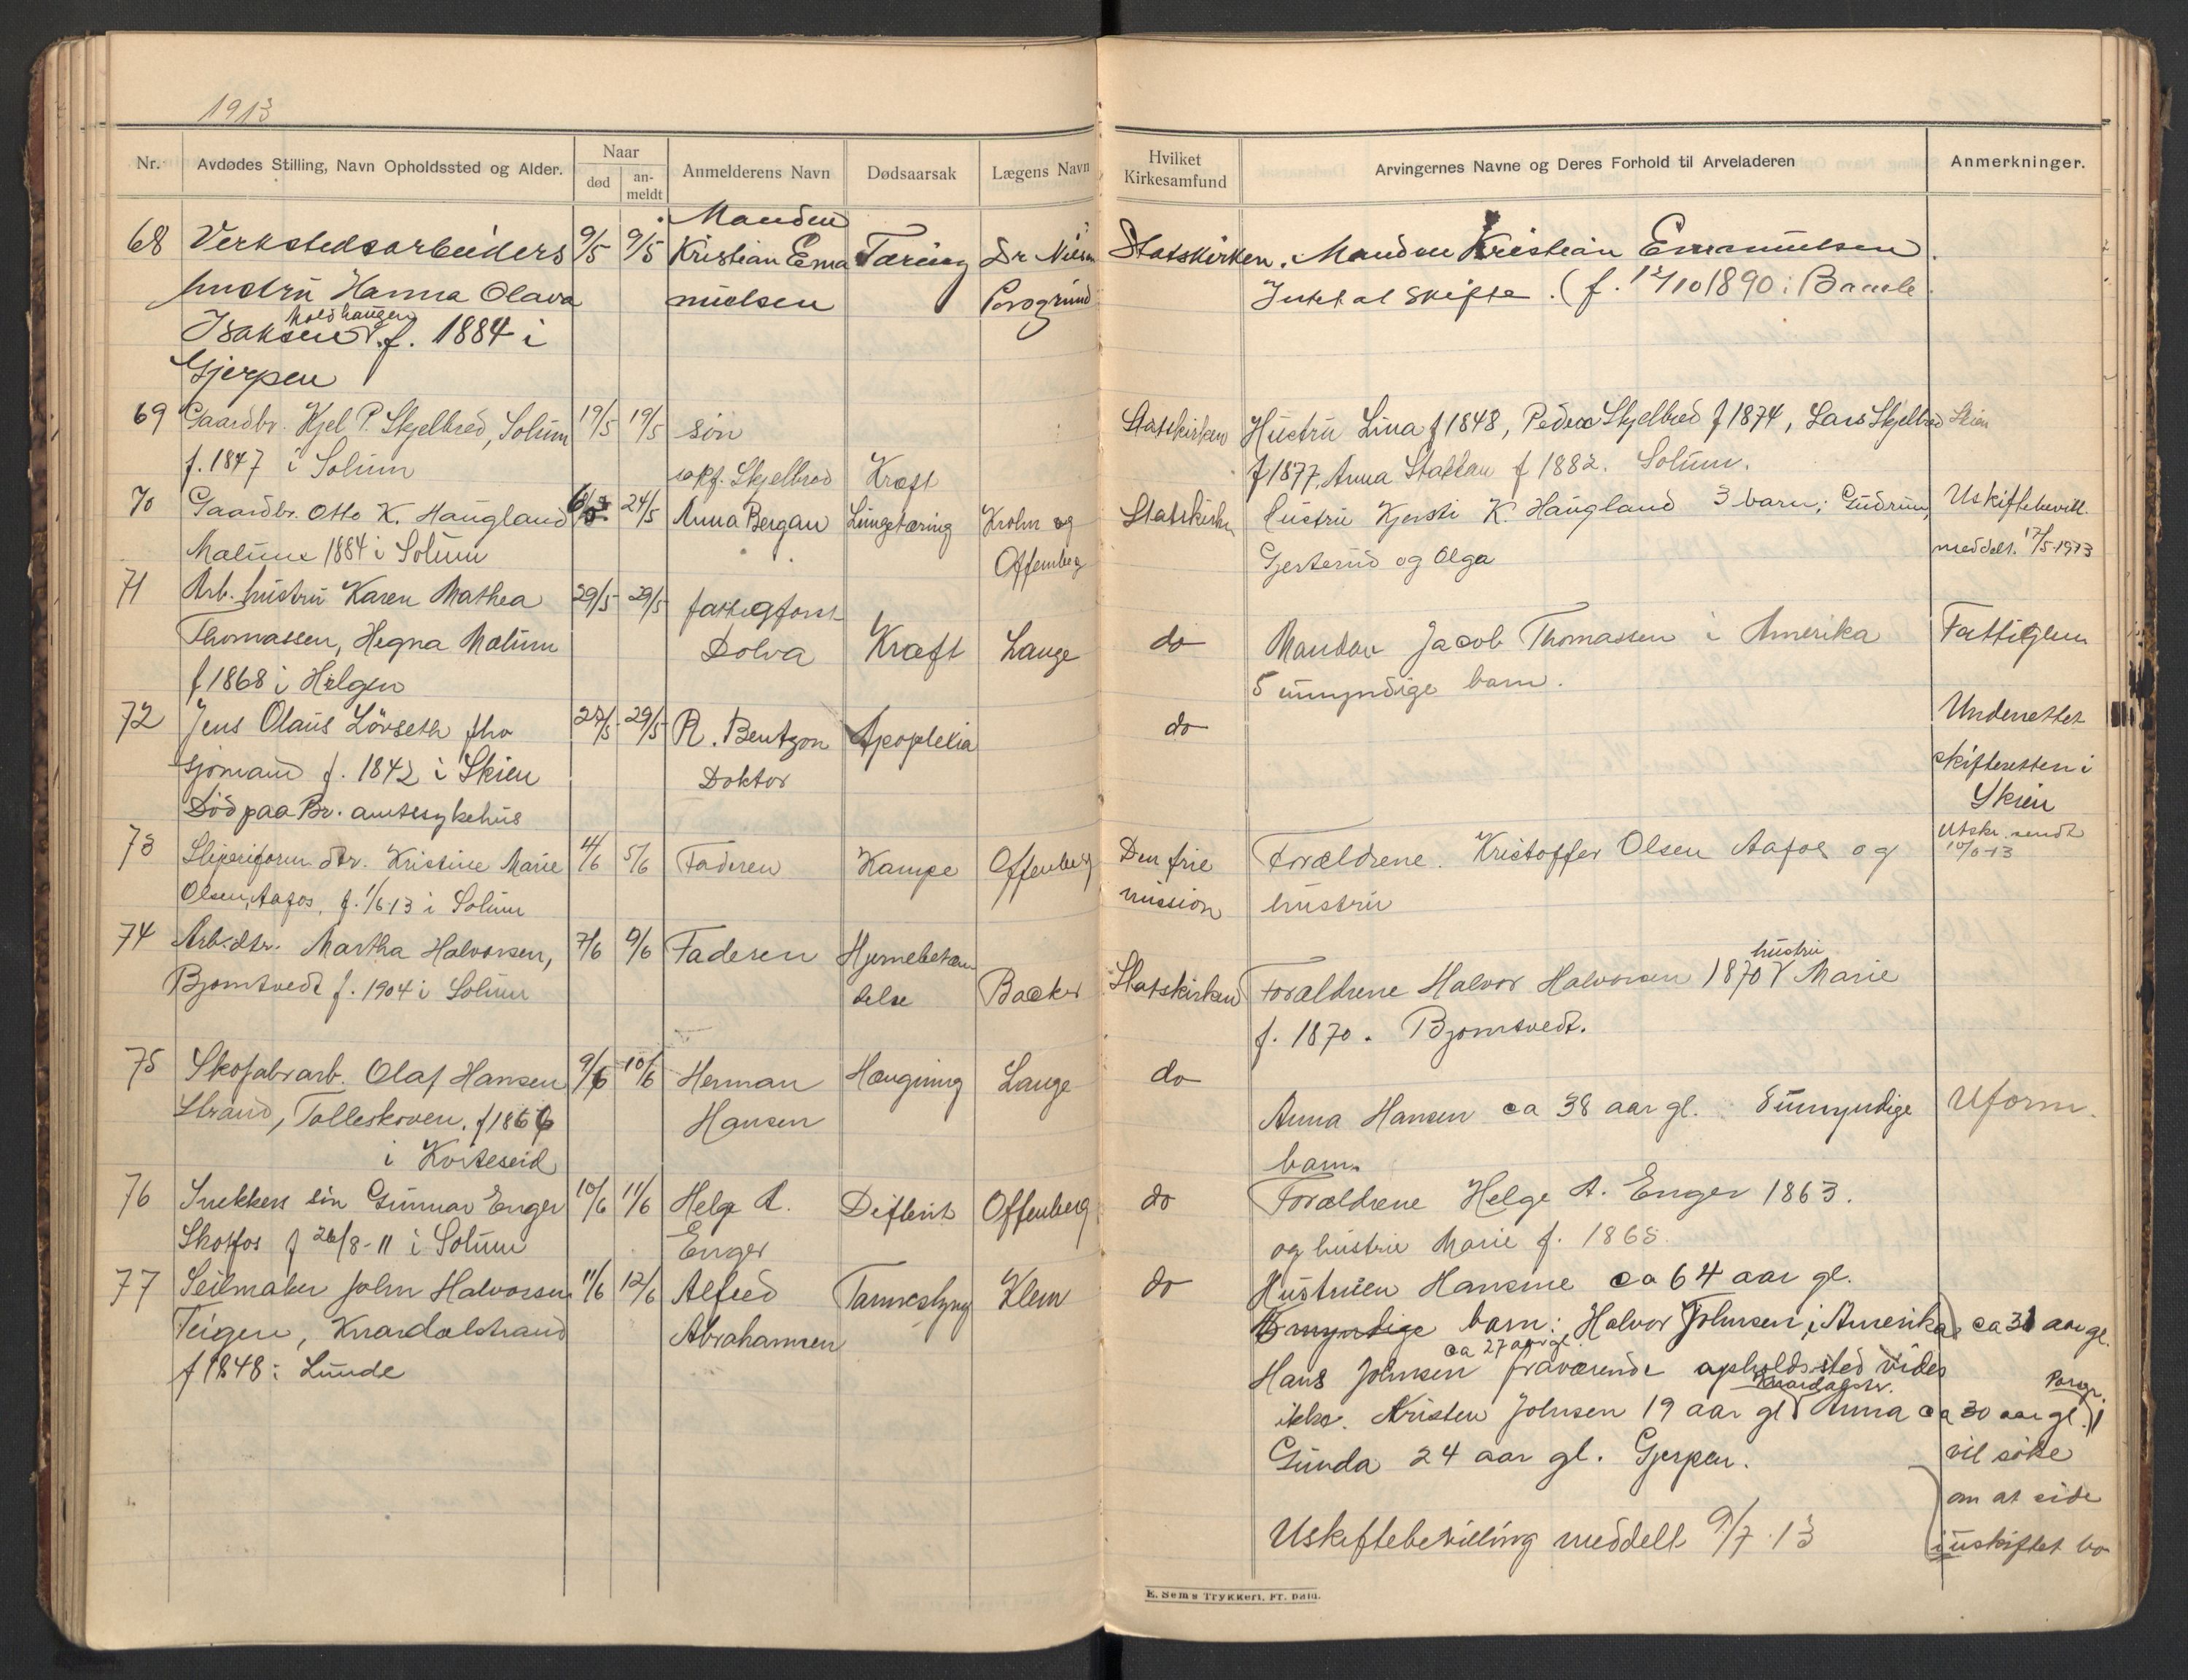 1913
Nr.
Avdødes Stilling, Navn Opholdssted og Alder.
Naar
død
an-
meldt
Anmelderens Navn
Dødsaarsak
Lægens Navn
Hvilket
Kirkesamfund
Arvingernes Navne og Deres Forhold til Arveladeren
Anmerkninger.
Manden
68 Verkstedsarbeiders 9/5 9/5 Kristian Ema Tæring Dr Nilsen Statskirken. Manden Kristian Emanuelsen.
hustru Hanna Olava nuelsen Porsgrund Intet at skifte. (f. 12/10 1890 i Bamle.
Moldhaugen
Isaksen f. 1884 i
Gjerpen
69 Gaardbr. Kjel P. Skjelbred, Solum 19/5 19/5 søn Statskirken Hustru Lina f 1848, Peder Skjelbred f 1874, Lars Skjelbred Skien
f. 1847 i Solum Skjelbred Kræft f 1877, Anna f 1882. Solum.
70 Gaardbr. Otto K. Haugland 24/5 Anna Bergan Lungetæring Krohn og Statskirken hustru Kjersti K. Haugland 3 barn; Gudrun, Uskiftebevill.
Mælum 1884 i Solum Offenberg Gjerterud og Olga meddelt. 17/5-1913
71 Arb. hustru Karen Mathea 29/5 29/5 fattigforst
Thomassen, Hegna Mælum Dolva Kræft Lange do Manden Jacob Thomassen i Amerika Fattiglem
f 1868 i Helgen 5 umyndige barn.
72 Jens Olaus Lövseth fhv 27/5 29/5 R. Bentzon Apoplexia do Underrettet
sjömand f. 1842 i Skien Doktor skifteretten i
Död paa Br. amtssykehus Skien
73 Sliperiform. dtr. Kristine Marie 4/6 5/6 Faderen Krampe Offenberg Den frie Forældrene. Kristoffer Olsen Aafos og Utskr. sendt
10/6-13
Olsen, Aafos, f. 1/6-13 i Solum mission hustru
74 Arb. dtr. Martha Halvorsen, 7/6 9/6 Faderen Hjernebetæn
hustru
Bjørntvedt f. 1904 i Solum delse Backer Statskirken Forældrene Halvor Halvorsen 1870 Marie
f. 1870. Bjørntvedt.
75 Skofabrarb. Olaf Hansen 9/6 10/6 Herman Hængning Lange do
Strand, Tolleskoven. f 1866 Hansen Anna Hansen ca 38 aar gl. 8 umyndige Uform.
i Kviteseid barn.
76 Snekkers sön Gunnar Enger 10/6 11/6 Helge A. Difterit Offenberg do Forældrene Helge A. Enger 1863.
Skotfos f 26/8-11 i Solum Enger og hustru Marie f. 1865.
77 Seilmaker John Halvorsen 11/6 12/6 Alfred Klem do Hustruen Hansine ca 64 aar gl.
Teigen, Knardalstrand Abrahamsen myndige barn: Halvor Johnsen i Amerika, ca 31 aar gl.
ca 27 aar gl.
f 1848 i Lunde Hans Johnsen fraværende opholdssted vides
Knardalstr. Porsgr.
ikke. Kristen Johnsen 19 aar gl Anna ca 30 aar gl.
Gunda 24 aar gl. Gjerpen. vil söke
om at side
Uskiftebevilling meddelt 9/7-13 i uskiftet bo
E. Sems Trykkeri, Fr.hald.